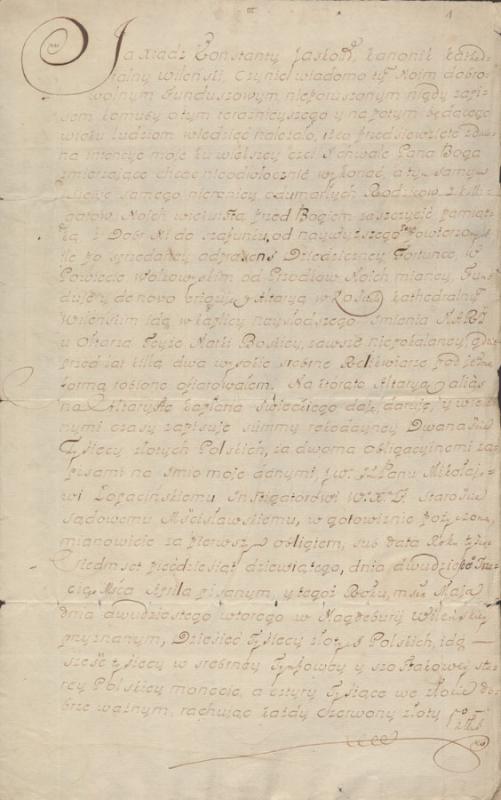 1
Ja Xiądz Konstanty Jaskołd, Kanonik Kathed-
ralny Wilenski, Czynię wiadomo tym Moim dobro-
wolnym Funduszowym, nieporuszonym nigdy zapi-
sem komuby o tym teraznieyszego y na potym będącego
wieku ludziom wiedzieć należało, iż ja przedsięwzięte
na intencye moje ku większey czci y chwale Pana Boga
zmierzające chcąc nieodwłocznie wykonać, a tym samym
siebie samego niemniey z umarłych Rodzicow, z Kolli-
gatow Moich wieczystą przed Bogiem zaszczycić pamiąt-
ką, z Dobr Mi do szafunku od naywyższego powierzonych
po sprzedaney Dziedziczney Fortunce, w
Powiecie Wołkowyskim od Przodkow Moich mianey, Fun-
duję y de novo eriguję Altaryą w Kosciele Kathedralnym
Wilenskim idq w kaplicy naysłodszego Imienia MARYI
u Ołtarza Teyże Matki Boskiey, zawsze niepokalaney, gdzie
przed lat kilką dwa wysokie srebrne Relikwiarze pod jedną
formą robione ofiarowałem. Na ktorąto Altaryą alias
na Altarystę Kapłana Swieckiego daję, daruję, y wiecz-
nymi czasy zapisuję summy rękodayney Dwanascie
Tysięcy złotych Polskich, za dwoma obligacyinemi za-
pisami na imie moje danymi, przez JW. JPana Mikołaja
Łopacińskiemu Instigatorowi W. X. L. Staroscie
Sądowemu Mscisławskiemu, w gotowiznie pożyczoną,
mianowicie za pierwszym obligiem, sub data Roku tysiąc
Siedmset pięćdziesiąt dziewiątego, dnia dwudziestego Trze-
ciego Msca Apryla pisanym, y tegoż Roku, msca Maja
dnia dwudziestego wtorego w Magdeburyi Wilenskiey
przyznanym, Dziesięć Tysięcy złotych Polskich, idq
szesc tysięcy w srebrney Tynfowey y szostakowey sta-
rey Polskiey monecie, a cztyry Tysiące we złocie do-
brze ważnym, rachując każdy czerwony złoty po